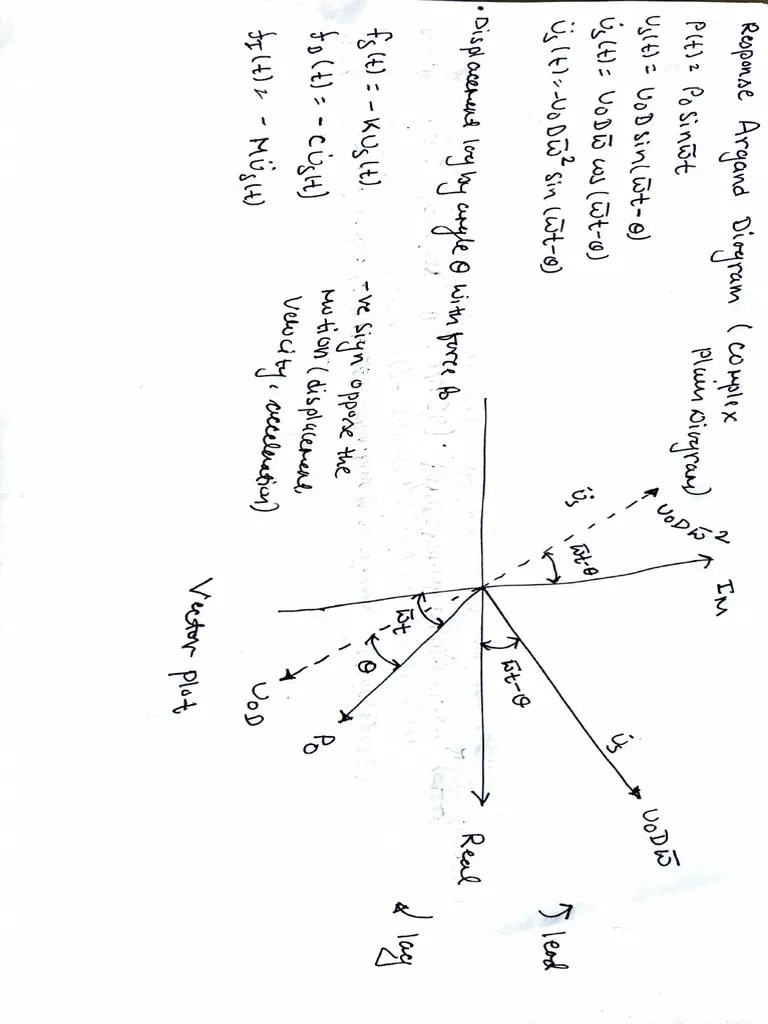 Response Argand Diagram (complex
plain Diagram)
P(t) = P₀ sin ω̄t
Us(t) = U₀D sin(ω̄t-θ)
U̇s(t) = U₀Dω̄ cos(ω̄t-θ)
Üs(t) = -U₀Dω̄² sin(ω̄t-θ)
• Displacement lag by angle θ with force P₀
fs(t) = -KUs(t)
fD(t) = -CU̇s(t)
fI(t) = -MÜs(t)
-ve sign oppose the
motion (displacement,
velocity, acceleration)
IM
U₀Dω̄²
Üs
ω̄t-θ
U₀Dω̄
U̇s
ω̄t-θ
Real
ω̄t
θ
P₀
U₀D
↑ lead
↓ lag
Vector plot